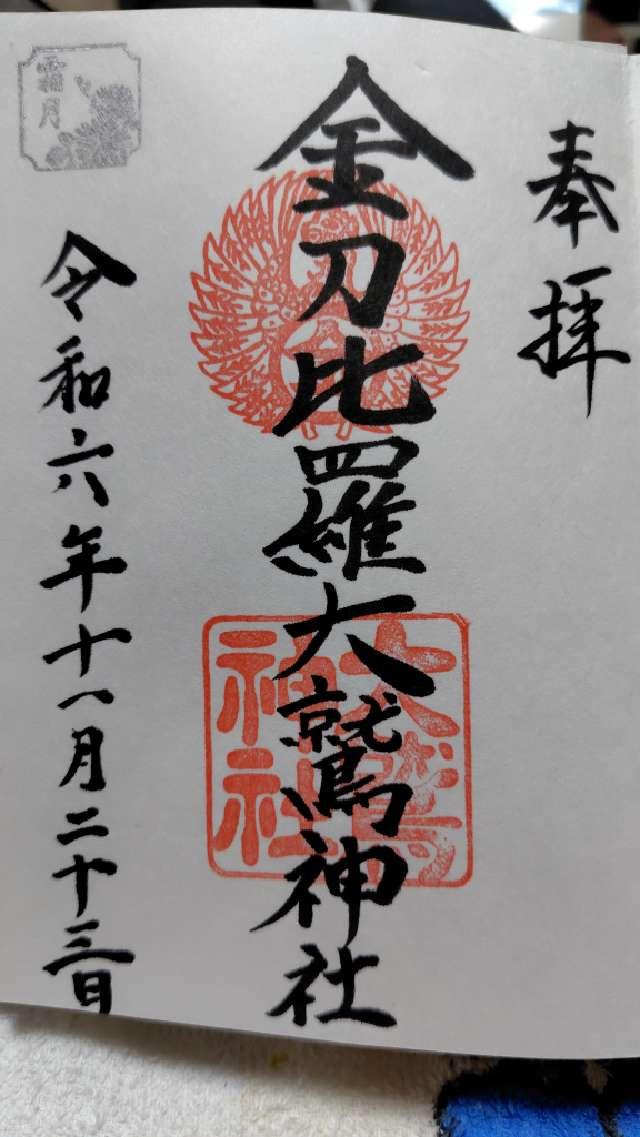 奉拝
金刀比羅大鷲神社
大鷲
神社
令和六年十一月二十三日
霜月